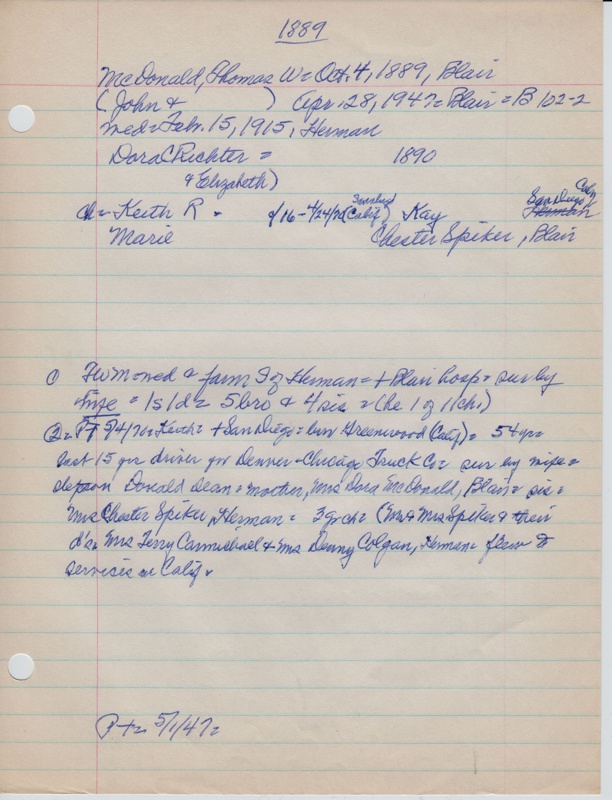 1889
McDonald, Thomas W = Oct. 4, 1889, Blair
(John & ) Apr. 28, 1947 = Blair = B 102-2
med = Feb. 15, 1915, Herman
Dora C Richter = 1890
& Elizabeth)
ch = Keith R = 9/16 - 4/24/70 (Calif) Kay San Diego Calif Herman
Marie Chester Spiker, Blair
① TWM = med & farm S of Herman = + Blair hosp = sur by
wife = 1s 1d = 5 bro & 4 sis = (he 1 of 11 ch.)
② = PT 5/4/70 = Keith = + San Diego = bur Greenwood (Calif) = 54 yrs
last 15 yrs driver for Denver-Chicago Truck Co = sur by wife =
stepson Donald Dean = mother, Mrs Dora McDonald, Blair = sis =
Mrs Chester Spiker, Herman = 3 grch = (Mr & Mrs Spiker & their
d's = Mrs Terry Carmichael & Mrs Denny Colgan, Herman = flew to
services in Calif.
P T = 5/1/47 =